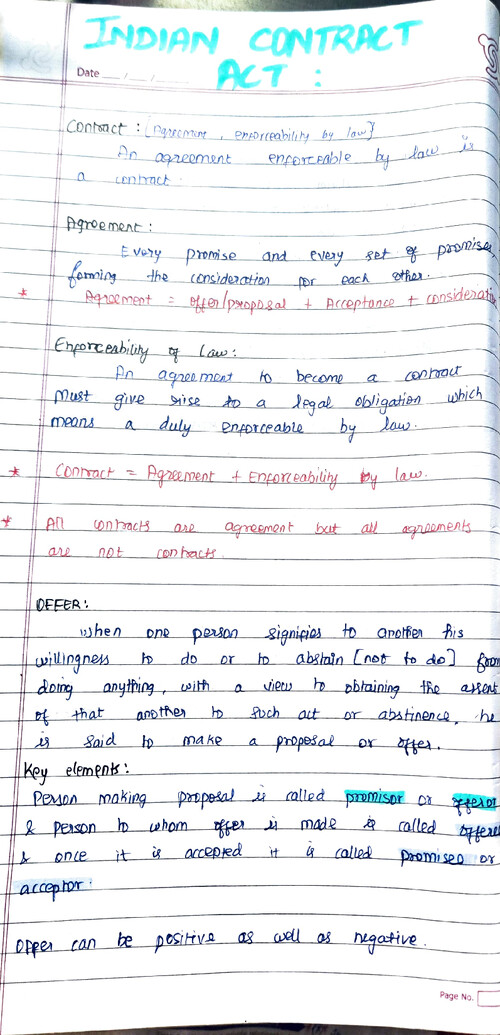 INDIAN CONTRACT
Date __/__/__
ACT :
Contract : [Agreement, enforceability by law]
An agreement enforceable by law is
a contract.
Agreement :
Every promise and every set of promises,
forming the consideration for each other.
* Agreement = offer/proposal + Acceptance + consideratio
Enforceability of law :
An agreement to become a contract
must give rise to a legal obligation which
means a duly enforceable by law.
* Contract = Agreement + Enforceability by law.
* All contracts are agreement but all agreements
are not contracts.
OFFER :
When one person signifies to another his
willingness to do or to abstain [not to do] from
doing anything, with a view to obtaining the assent
of that another to such act or abstinence, he
is said to make a proposal or offer.
Key elements :
Person making proposal is called promisor or offeror
& person to whom offer is made is called offere
& once it is accepted it is called promisee or
acceptor.
Offer can be positive as well as negative.
Page No.